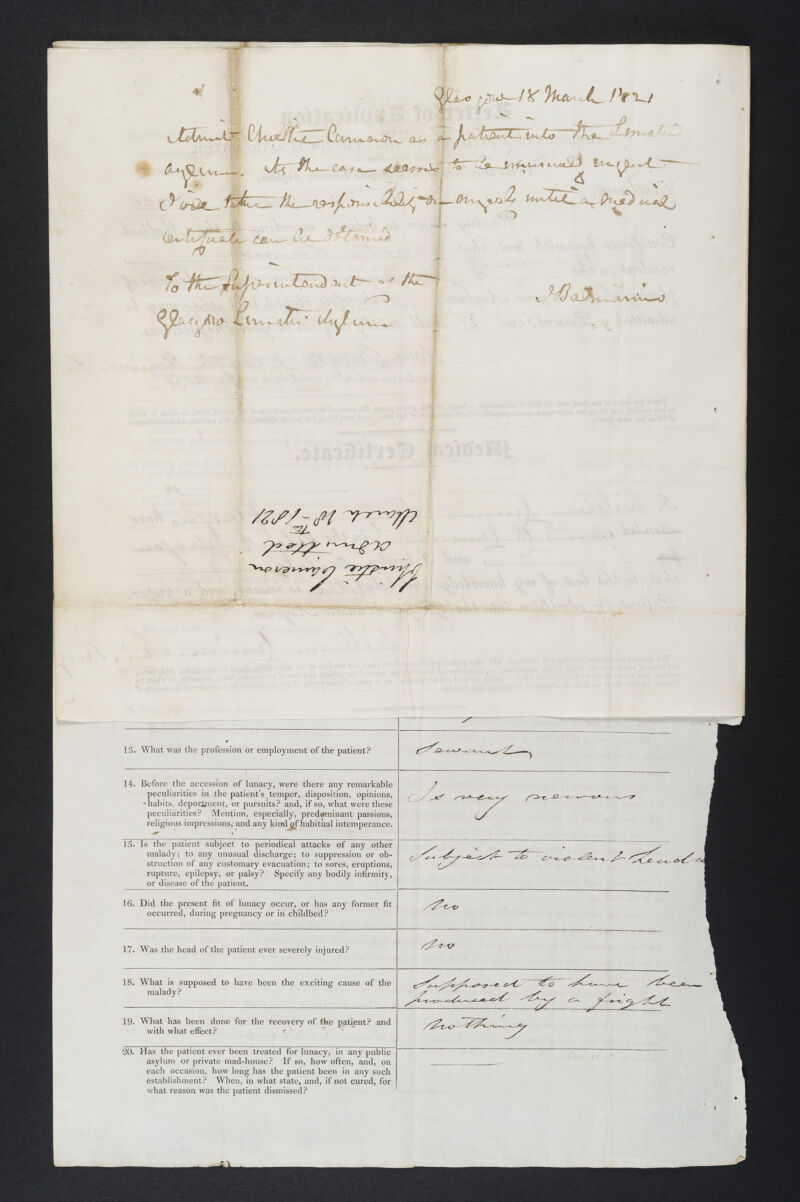 Glasgow 18 March 1821
Admit Christie Cameron as a patient into the Lunatic
asylum. As the case seems to be unusual urgent
I will take the responsibility on myself until a medical
certificate can be obtained
To the Superintendant of the
Glasgow Lunatic Asylum
J Balmanno
Christie Cameron
admitted
March 18th 1821
Medical Certificate.
13. What was the profession or employment of the patient?
Servant
14. Before the accession of lunacy, were there any remarkable
peculiarities in the patient's temper, disposition, opinions,
habits, deportment, or pursuits? and, if so, what were these
peculiarities? Mention, especially, predominant passions,
religious impressions, and any kind of habitual intemperance.
Is very nervous
15. Is the patient subject to periodical attacks of any other
malady; to any unusual discharge; to suppression or ob-
struction of any customary evacuation; to sores, eruptions,
rupture, epilepsy, or palsy? Specify any bodily infirmity,
or disease of the patient.
Subject to violent head
16. Did the present fit of lunacy occur, or has any former fit
occurred, during pregnancy or in childbed?
No
17. Was the head of the patient ever severely injured?
No
18. What is supposed to have been the exciting cause of the
malady?
Supposed to have been
produced by a fright
19. What has been done for the recovery of the patient? and
with what effect?
Nothing
20. Has the patient ever been treated for lunacy, in any public
asylum or private mad-house? If so, how often, and, on
each occasion, how long has the patient been in any such
establishment? When, in what state, and, if not cured, for
what reason was the patient dismissed?